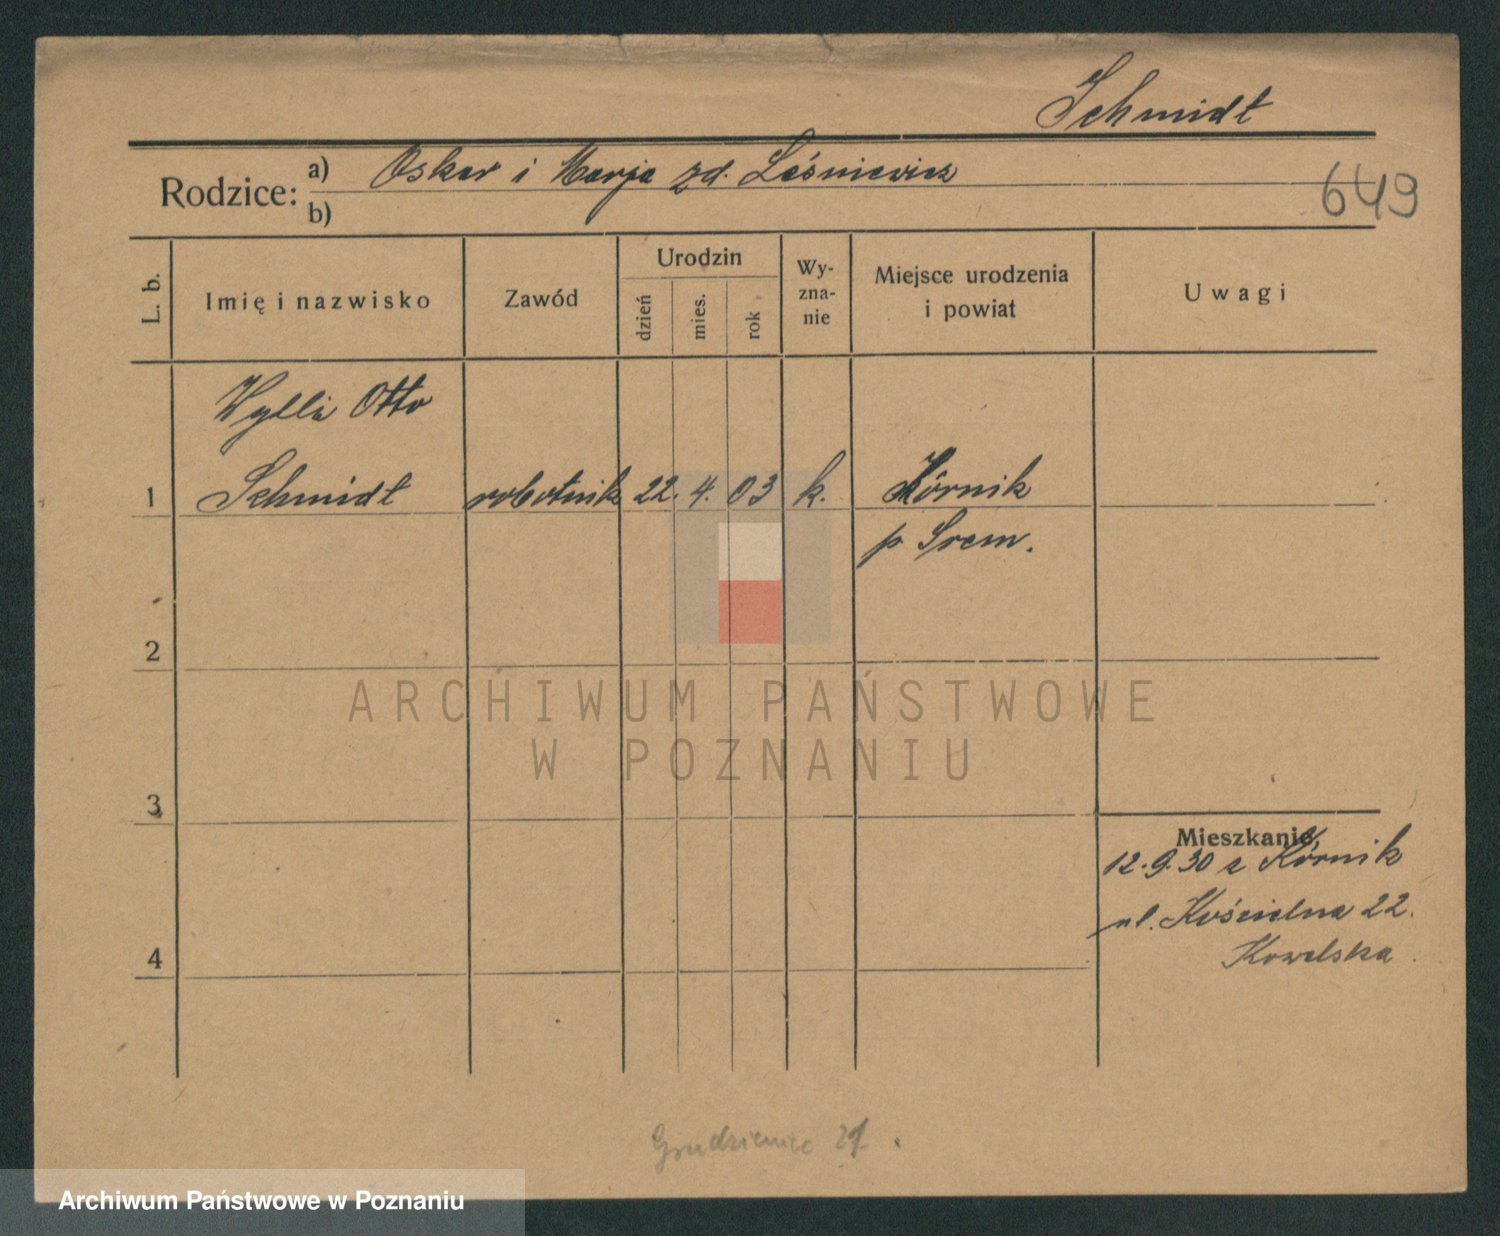 Schmidt
Rodzice: a) Oskar i Marja zd. Leśniewicz
b)
649
L. b.
Imię i nazwisko
Zawód
Urodzin
dzień
mies.
rok
Wy-
zna-
nie
Miejsce urodzenia
i powiat
Uwagi
Wylli Otto
1 Schmidt robotnik 22. 4. 03 k. Kórnik
p Śrem.
2
ARCHIWUM PAŃSTWOWE
W POZNANIU
3
Mieszkanie
12.9.30 z Kórnik
ul. Kościelna 22.
Kowalska
4
Grudzieniec 21.
Archiwum Państwowe w Poznaniu